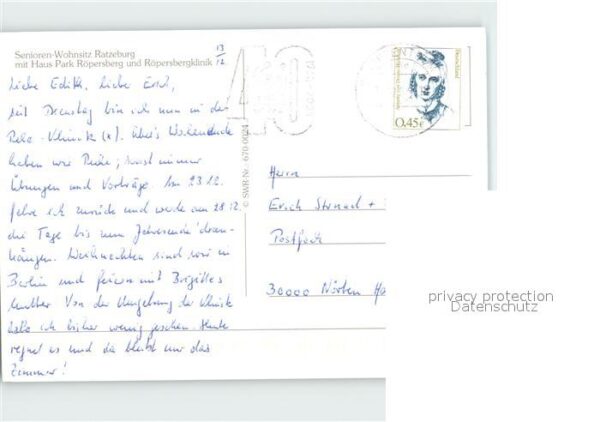 Senioren-Wohnsitz Ratzeburg
mit Haus Park Röpersberg und Röpersbergklinik
13/12
Liebe Edith, lieber Erich,
seit Dienstag bin ich nun in der
Reha-Klinik (x). Über's Wochenende
haben wir Ruhe, sonst immer
Übungen und Vorträge. Am 23.12.
fahre ich zurück und werde am 28.12.
die Tage bis zum Jahresende dran-
hängen. Weihnachten sind wir in
Berlin und feiern mit Brigittes
Mutter. Von der Umgebung der Klinik
habe ich bisher wenig gesehen. Heute
regnet es und da bleibt nur das
Zimmer!
© SWR-Nr. 670-0024
40
Deutschland
0,45€
Herrn
Erich
Postfach
Nörten
privacy protection
Datenschutz